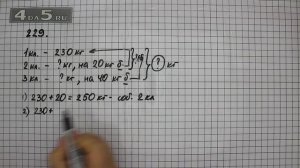 4da5.ru
229.
1 кл. - 230 кг
2 кл. - ? кг, на 20 кг б
? кг
3 кл. - ? кг, на 40 кг б
1) 230 + 20 = 250 кг - соб. 2 кл
2) 230 +